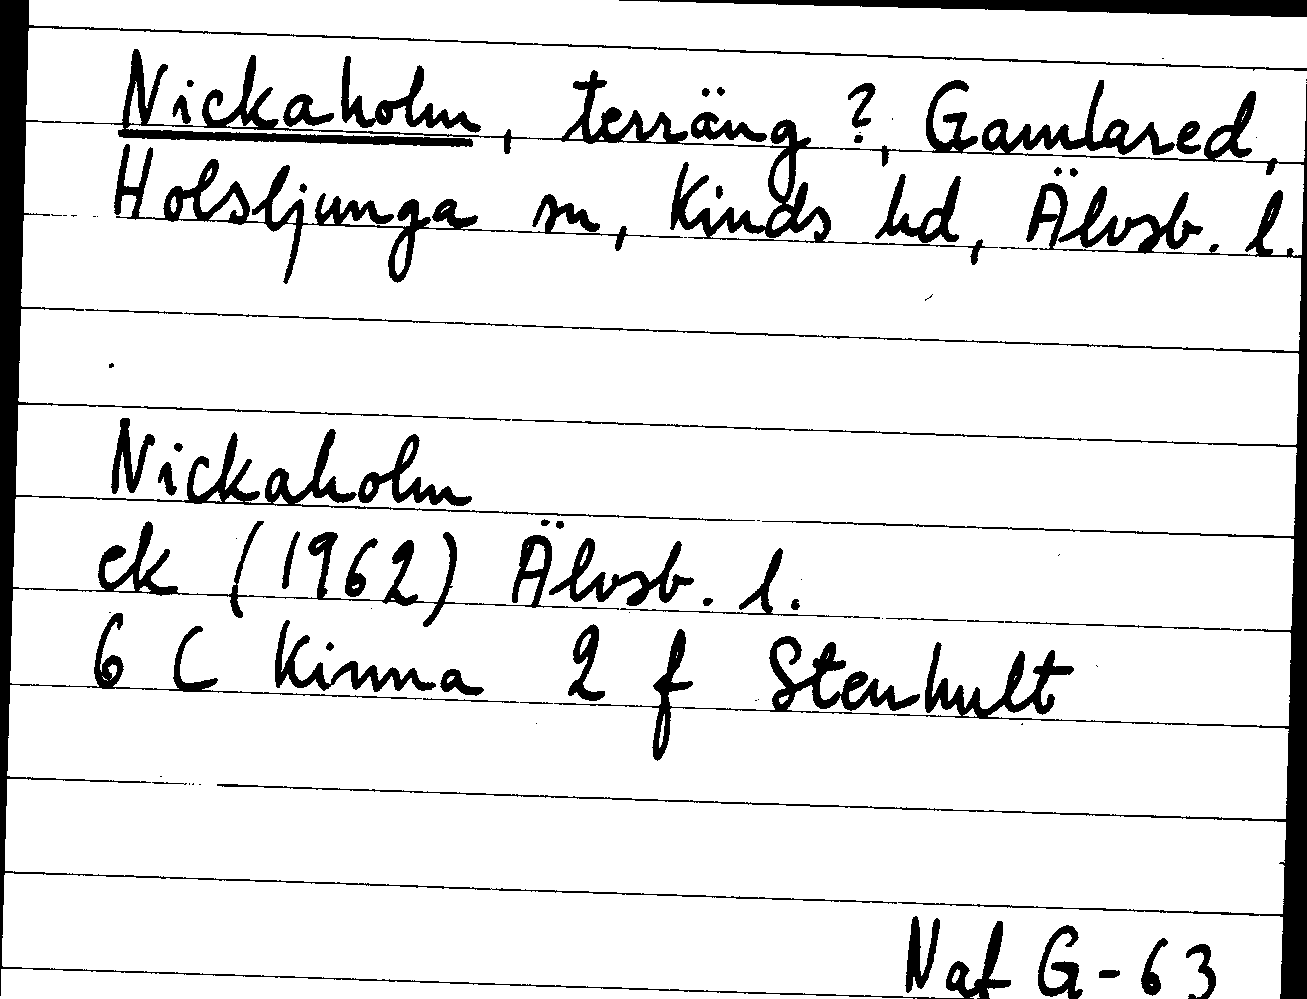 Nickaholm, terräng ?, Gamlared,
Holsljunga sn, Kinds hd, Älvsb. l.
Nickaholm
ek (1962) Älvsb. l.
6 C Kinna 2 f Stenhult
Naf G-63